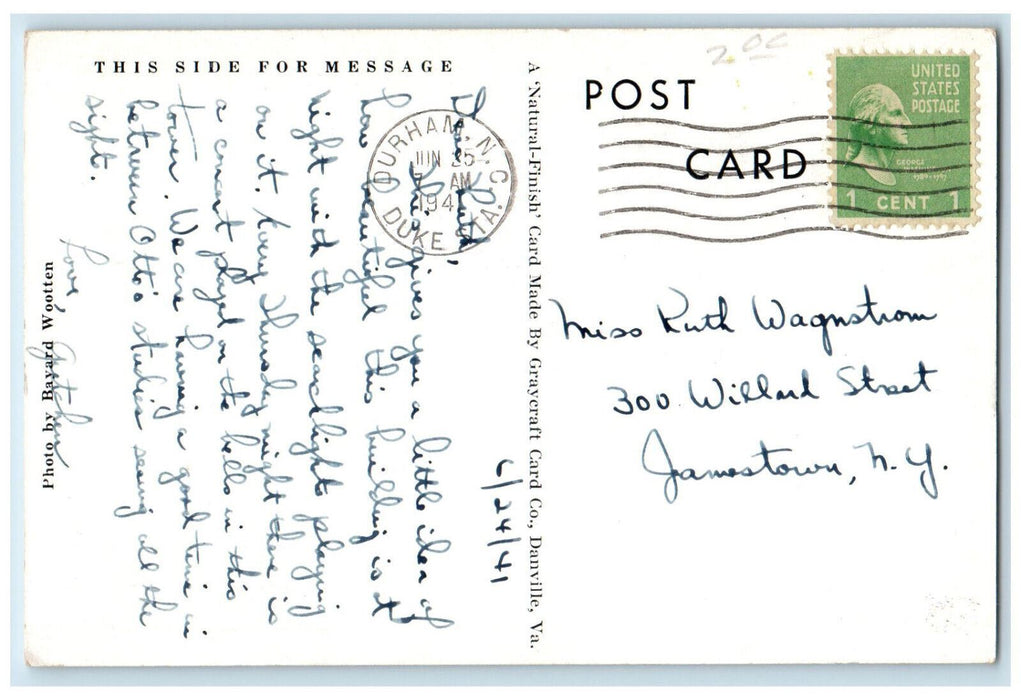 THIS SIDE FOR MESSAGE
6/24/41
Dear Ruth,
This gives you a little idea of
how beautiful this building is at
night with the searchlights playing
on it. Every Thursday night there is
a concert played on the bells in this
tower. We are having a good time in
between Otto's studies seeing all the
sight.
Love
Gretchen
Photo by Bayard Wootten
A 'Natural-Finish' Card Made By Graycraft Card Co., Danville, Va.
DURHAM, N.C.
JUN 25
AM
194
DUKE STA.
20c
POST
CARD
UNITED
STATES
POSTAGE
GEORGE
1 CENT 1
Miss Ruth Wagnstrom
300 Willard Street
Jamestown, N.Y.